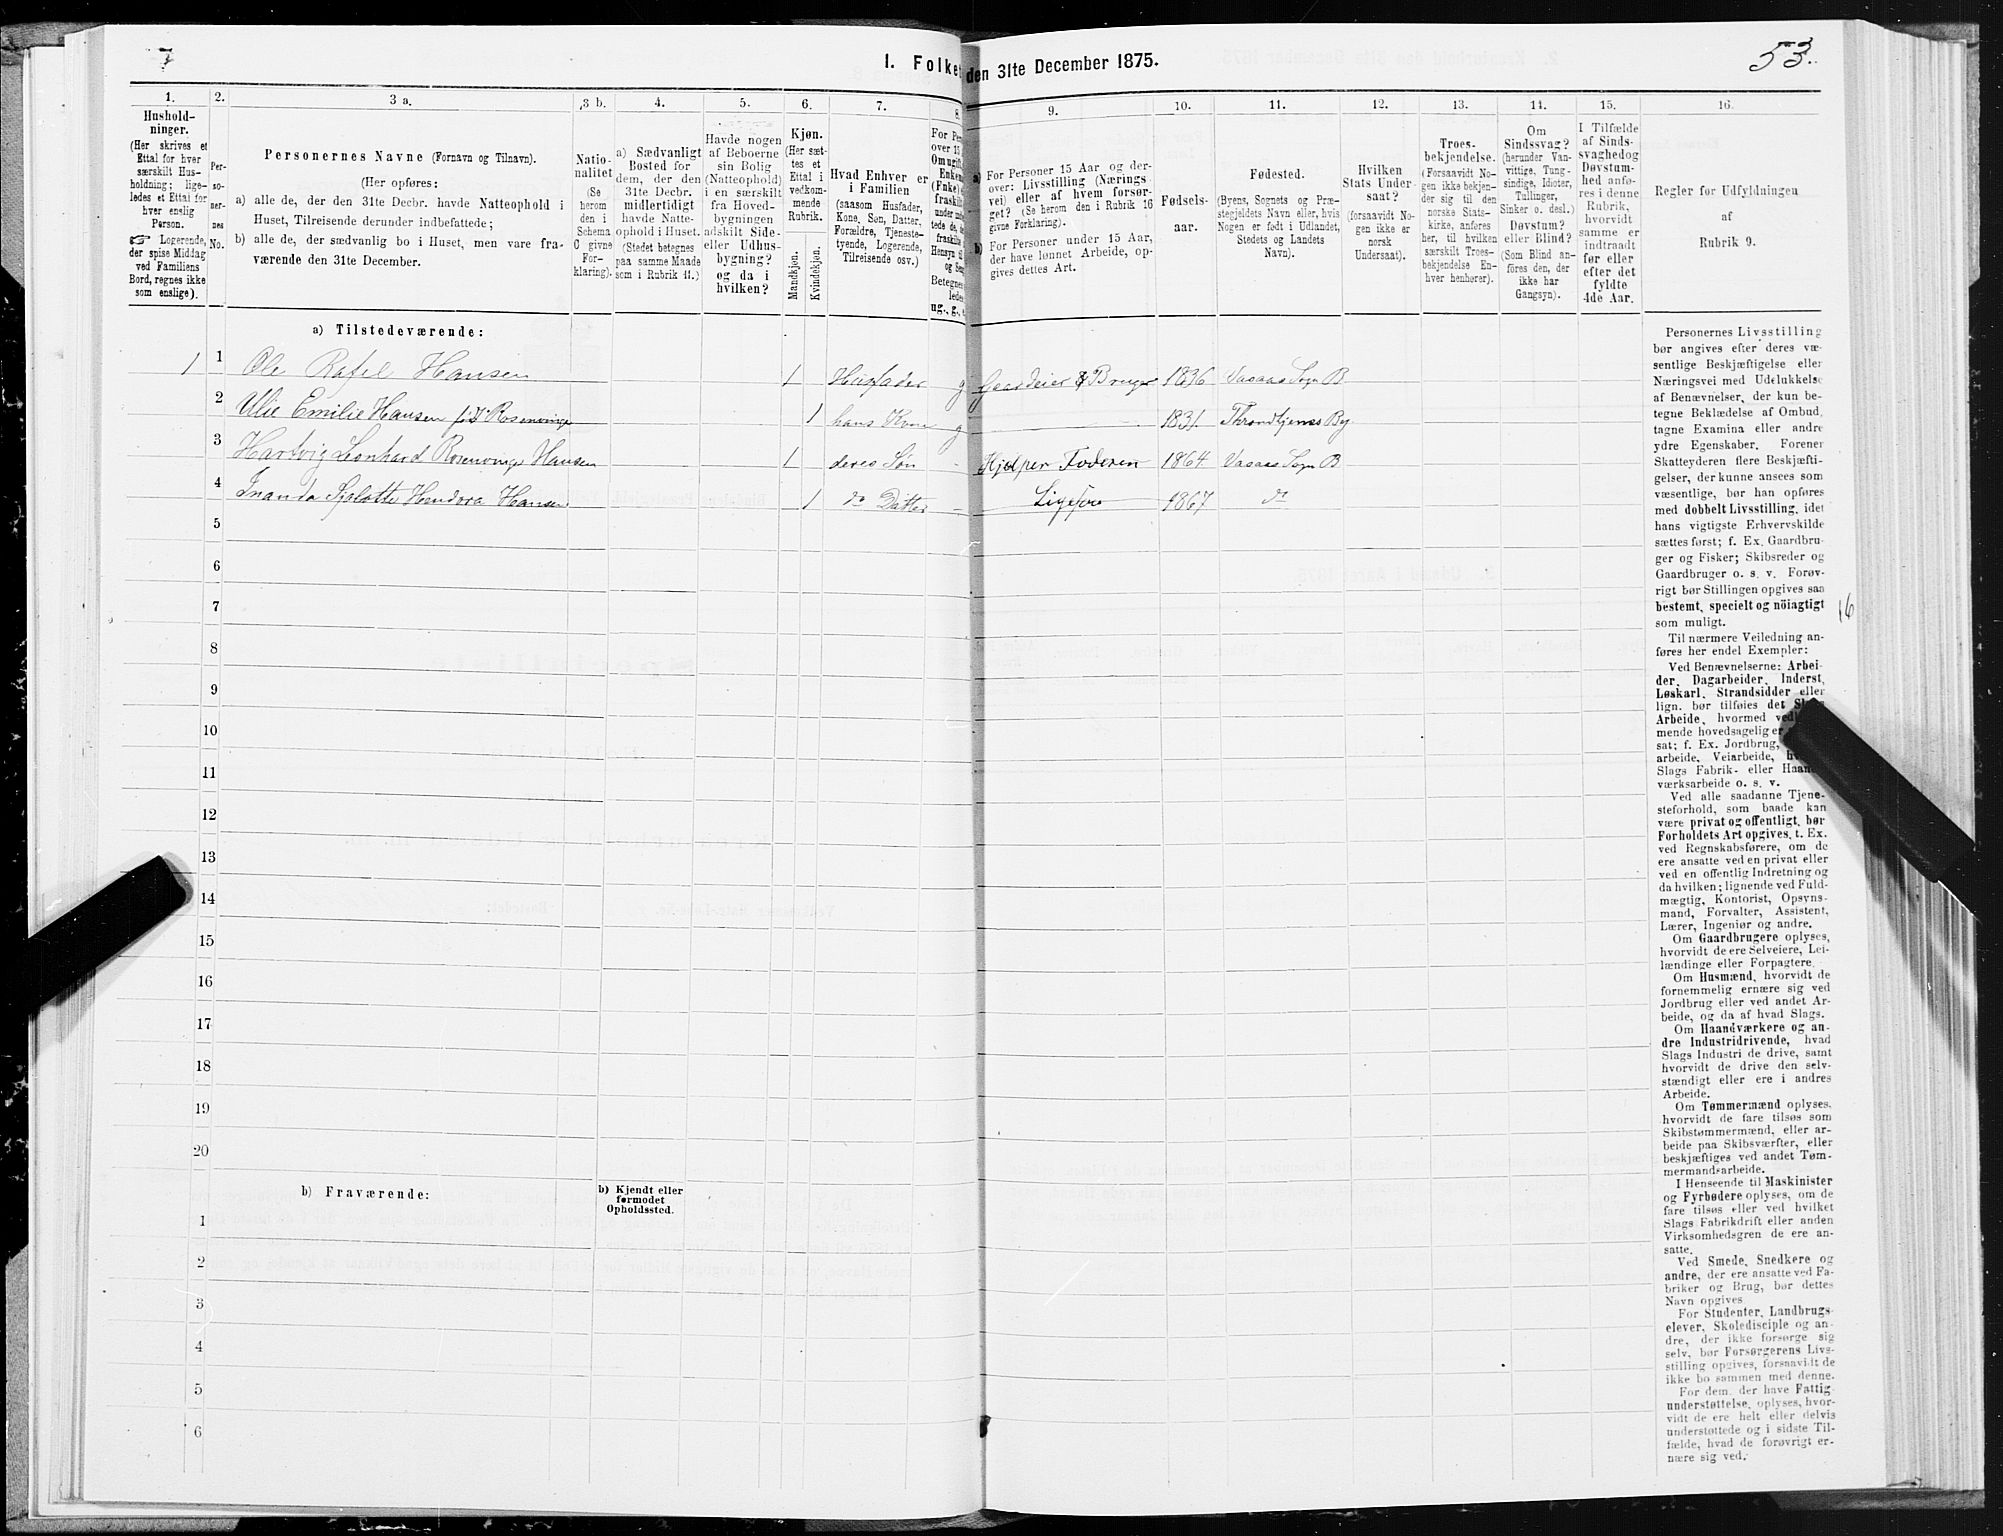 7
1. Folket
den 31te December 1875.
53.
1.
2.
3 a.
3 b.
4.
5.
6.
7.
8.
9.
10.
11.
12.
13.
14.
15.
16.
Hushold-
ninger.
(Her skrives et
Ettal for hver
særskilt Hus-
holdning; lige-
ledes et Ettal for
hver enslig
Person.
☞ Logerende,
der spise Middag
ved Familiens
Bord, regnes ikke
som enslige).
Per-
so-
ner-
nes
No.
Personernes Navne (Fornavn og Tilnavn).
(Her opføres:
a) alle de, der den 31te Decbr. havde Natteophold i
Huset, Tilreisende derunder indbefattede;
b) alle de, der sædvanlig bo i Huset, men vare fra-
værende den 31te December.
Natio-
nalitet
(Se
herom
den i
Schema
C givne
For-
klaring).
a) Sædvanligt
Bosted for
dem, der den
31te Decbr.
midlertidigt
havde Natte-
ophold i Huset.
(Stedet betegnes
paa samme Maade
som i Rubrik 11.)
Havde nogen
af Beboerne
sin Bolig
(Natteophold)
i en særskilt
fra Hoved-
bygningen
adskilt Side-
eller Udhus-
bygning?
og da i
hvilken?
Kjøn.
(Her sæt-
tes et
Ettal i
vedkom-
mende
Rubrik.
Mandkjøn.
Kvindekjøn.
Hvad Enhver er
i Familien
(saasom Husfader,
Kone, Søn, Datter,
Forældre, Tjeneste-
tyende, Logerende,
Tilreisende osv.)
For Per
over 15
Om ugift,
Enkem
(Fnke)
fraskilt
a) For Personer 15 Aar og der-
over: Livsstilling (Nærings-
vei) eller af hvem forsør-
get? (Se herom den i Rubrik 16
givne Forklaring).
b) For Personer under 15 Aar,
der have lønnet Arbeide, op-
gives dettes Art.
Fødsels-
aar.
Fødested.
(Byens, Sognets og Præ-
stegjeldets Navn eller, hvis
Nogen er født i Udlandet,
Stedets og Landets
Navn).
Hvilken
Stats Under-
saat?
(forsaavidt No-
gen ikke er
norsk
Undersaat).
Troes-
bekjendelse.
(Forsaavidt No-
gen ikke bekjen-
der sig til den
norske Stats-
kirke, anføres
her, til hvilken
særskilt Troes-
bekjendelse En-
hver henhører).
Om
Sindssvag?
(herunder Van-
vittige, Tung-
sindige, Idioter,
Tullinger,
Sinker o. desl.)
Døvstum?
eller Blind?
(Som Blind an-
føres den, der
ikke har
Gangsyn).
I Tilfælde
af Sinds-
svaghed og
Døvstum-
hed anfø-
res i denne
Rubrik,
hvorvidt
samme er
indtraadt
før eller
efter det
fyldte
4de Aar.
Regler for Udfyldningen
af
Rubrik 9.
a) Tilstedeværende:
1 1 Ole Rafel Hansen 1 Husfader g Gaardeier & Bruger 1836 Vasaas Sogn B
2 Ulie Emilie Hansen fød Rosenvinge 1 hans Kone g 1831. Throndhjems By
3 Hartvig Leonhard Rosenvinge Hansen 1 deres Søn - Hjelper Faderen 1864 Vasaas Sogn B
4 Hansen 1 do Datter - Ligesom 1867 do
5
6
7
8
9
10
11
12
13
14
15
16
17
18
19
20
b) Fraværende:
b) Kjendt eller
formodet
Opholdssted.
1
2
3
4
5
6
Personernes Livsstilling
bør angives efter deres væ-
sentlige Beskjæftigelse eller
Næringsvei med Udelukkelse
af Benævnelser, der kun be-
tegne Beklædelse af Ombud,
tagne Examina eller andre
ydre Egenskaber. Forener
Skatteyderen flere Beskjæfti-
gelser, der kunne ansees som
væsentlige, bør han opføres
med dobbelt Livsstilling, idet
hans vigtigste Erhvervskilde
sættes først; f. Ex. Gaardbru-
ger og Fisker; Skibsreder og
Gaardbruger o. s. v. Forøv-
rigt bør Stillingen opgives saa
bestemt, specielt og nöiagtigt
som muligt.
16
Til nærmere Veiledning an-
føres her endel Exempler:
Ved Benævnelserne: Arbei-
der, Dagarbeider, Inderst,
Løskarl, Strandsidder eller
lign. bør tilføies det Slags
Arbeide, hvormed ved
mende hovedsagelig er
sat; f. Ex. Jordbrug,
arbeide, Veiarbeide,
Slags Fabrik- eller Haand-
værksarbeide o. s. v.
Ved alle saadanne Tjene-
steforhold, som baade kan
være privat og offentligt, bør
Forholdets Art opgives, t. Ex.
ved Regnskabsførere, om de
ere ansatte ved en privat eller
ved en offentlig Indretning og
da hvilken; lignende ved Fuld-
mægtig, Kontorist, Opsyns-
mand, Forvalter, Assistent,
Lærer, Ingeniør og andre.
Om Gaardbrugere oplyses,
hvorvidt de ere Selveiere, Lei-
lændinge eller Forpagtere.
Om Husmænd, hvorvidt de
fornemmelig ernære sig ved
Jordbrug eller ved andet Ar-
beide, og da af hvad Slags.
Om Haandværkere og an-
dre Industridrivende, hvad
Slags Industri de drive, samt
hvorvidt de drive den selv-
stændigt eller ere i andres
Arbeide.
Om Tømmermænd oplyses,
hvorvidt de fare tilsøs som
Skibstømmermænd, eller ar-
beide paa Skibsværfter, eller
beskjæftiges ved andet Tøm-
mermandsarbeide.
I Henseende til Maskinister
og Fyrbødere oplyses, om de
fare tilsøs eller ved hvilket
Slags Fabrikdrift eller anden
Virksomhedsgren de ere an-
satte.
Ved Smede, Snedkere og
andre, der ere ansatte ved Fa-
briker og Brug, bør dettes
Navn opgives
For Studenter, Landbrugs-
elever, Skoledisciple og an-
dre, der ikke forsørge sig
selv, bør Forsørgerens Livs-
stilling opgives, forsaavidt de
ikke bo sammen med denne.
For dem, der have Fattig-
understøttelse, oplyses, hvor-
vidt de ere helt eller delvis
understøttede og i sidste Til-
fælde, hvad de forøvrigt er-
nære sig ved.